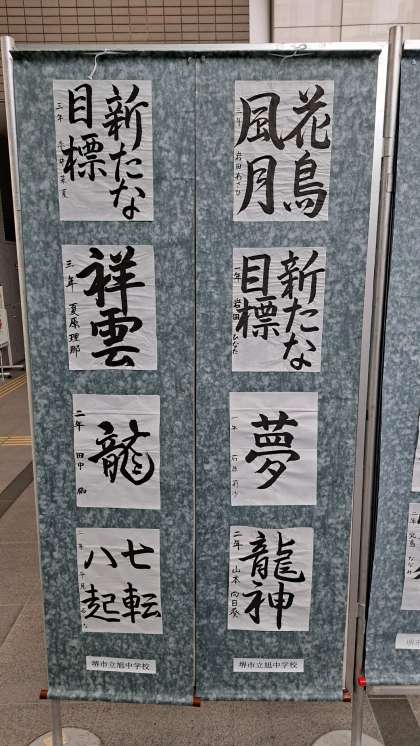 花鳥
風月
岩田あさひ
新たな
目標
一年
夢
龍神
二年 山本 向日葵
堺市立旭中学校
新たな
目標
三年
祥雲
三年 夏原理那
龍
二年 田中
七転
八起
堺市立旭中学校